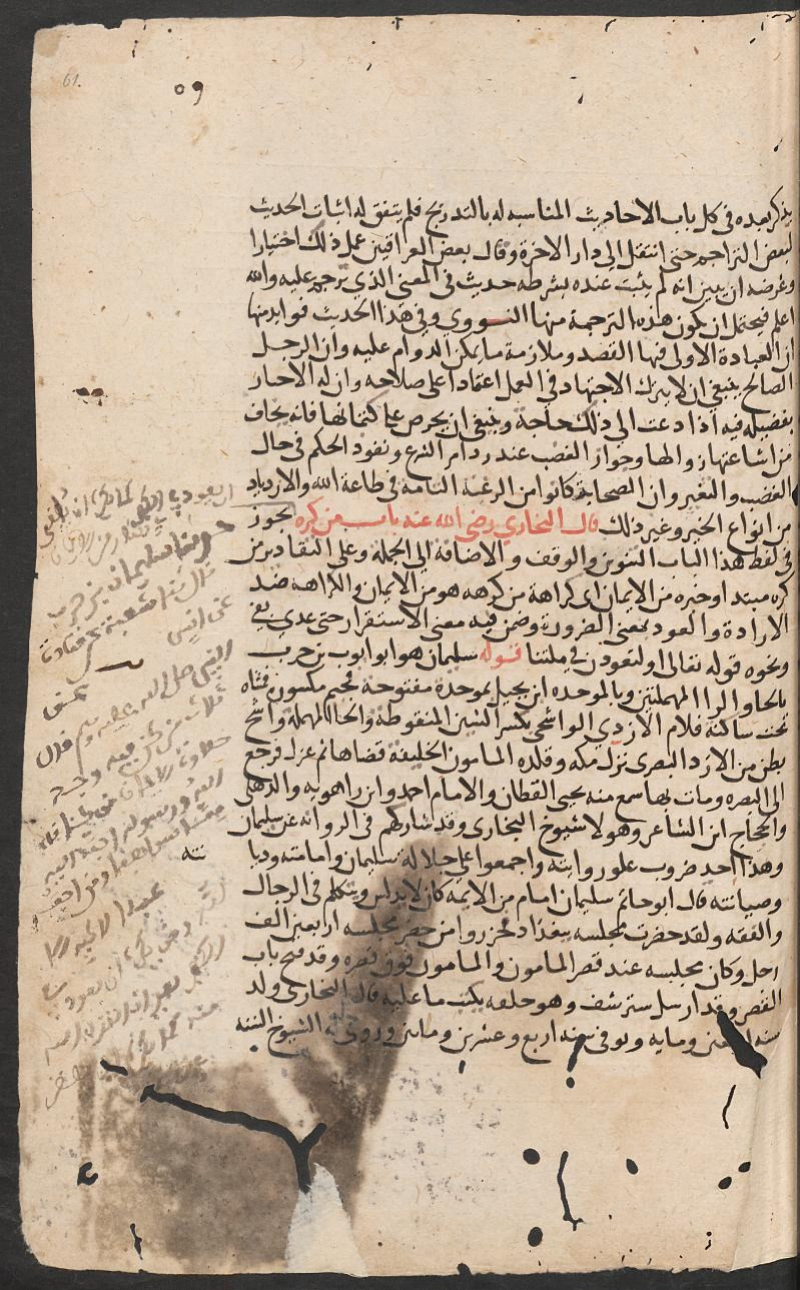 61.
٥٩
يذكر بعده في كل باب الاحاديث المناسبه له بالتدريج فلم يتفق له اثبات الحديث
لبعض التراجم حتى انتقل الى دار الاخرة وقال بعض العراقيين عمل ذلك اختيارا
وغرضه ان يبين انه لم يثبت عنده بشرطه حديث في المعنى الذي ترجم عليه والله
اعلم فيحتمل ان يكون هذه الترجمة منها النووي وفي هذا الحديث فوايد منها
ان العبادة الاولى فيها القصد وملازمة ما يمكن الدوام عليه وان الرجل
الصالح ينبغي ان لا يترك الاجتهاد في العمل اعتمادا على صلاحه وان له الاخبار
بفضيله فيه اذا دعت الى ذلك حاجة وينبغي ان يحرص على كتمانها فانه يخاف
من اشاعتها زوالها وجواز الغضب عند رد امر الشرع ونفوذ الحكم في حال
الغضب والتغير وان الصحابة كانوا من الرغبة التامه في طاعة الله والازدياد
من انواع الخير وغير ذلك قال البخاري رضي الله عنه باب من كره يجوز
في لفظ هذا الباب التنوين والوقف والاضافة الى الجملة وعلى التقادير من
كره مبتدا وخبره من الايمان اي كراهة من كرهه هو من الايمان والكراهه ضد
الارادة والعود بمعنى الصيرورة وضمن فيه معنى الاستقرار حتى عدي بفي
ونحوه قوله تعالى او لتعودن في ملتنا قوله سليمان هو ابو ايوب بن حرب
بالحا والرا المهملتين وبالموحده ابن بجيل بموحدة مفتوحة فجيم مكسورة فمثناه
تحت ساكنة فلام الازدي الواشحي بكسر الشين المنقوطة والحا المهملة وواشح
بطن من الازد البصري نزل مكه وقلده المامون الخليفة قضاها ثم عزل فرجع
الى البصره ومات بها سمع منه يحيى القطان والامام احمد وابن راهويه والذهلي
والحجاج ابن الشاعر وهولا شيوخ البخاري وقد شاركهم في الرواية عن سليمان
وهذا احد ضروب علو روايته واجمعوا على جلالة سليمان وامامته
وصيانته قال ابو حاتم سليمان امام من الايمة كان لا يدلس ويتكلم في الرجال
والفقه ولقد حضرت مجلسه ببغداد فحزروا من حضر مجلسه اربعين الف
رجل وكان مجلسه عند قصر المامون والمامون فوق قصره وقد فتح باب
القصر وقد ارسل ستر شف وهو خلفه يكتب ما عليه قال البخاري ولد
سنه وماية وتوفي سنه اربع وعشرين ومايتين وروى له الشيوخ الستة
حدثنا سليمان بن حرب
شعبة عن قتادة
عن انس
عن
النبي صلى الله عليه وسلم قال
ثلاث من كن فيه وجد
حلاوة الايمان من كان الله
ورسوله احب اليه
مما سواهما ومن احب
عبدا لا يحبه الا